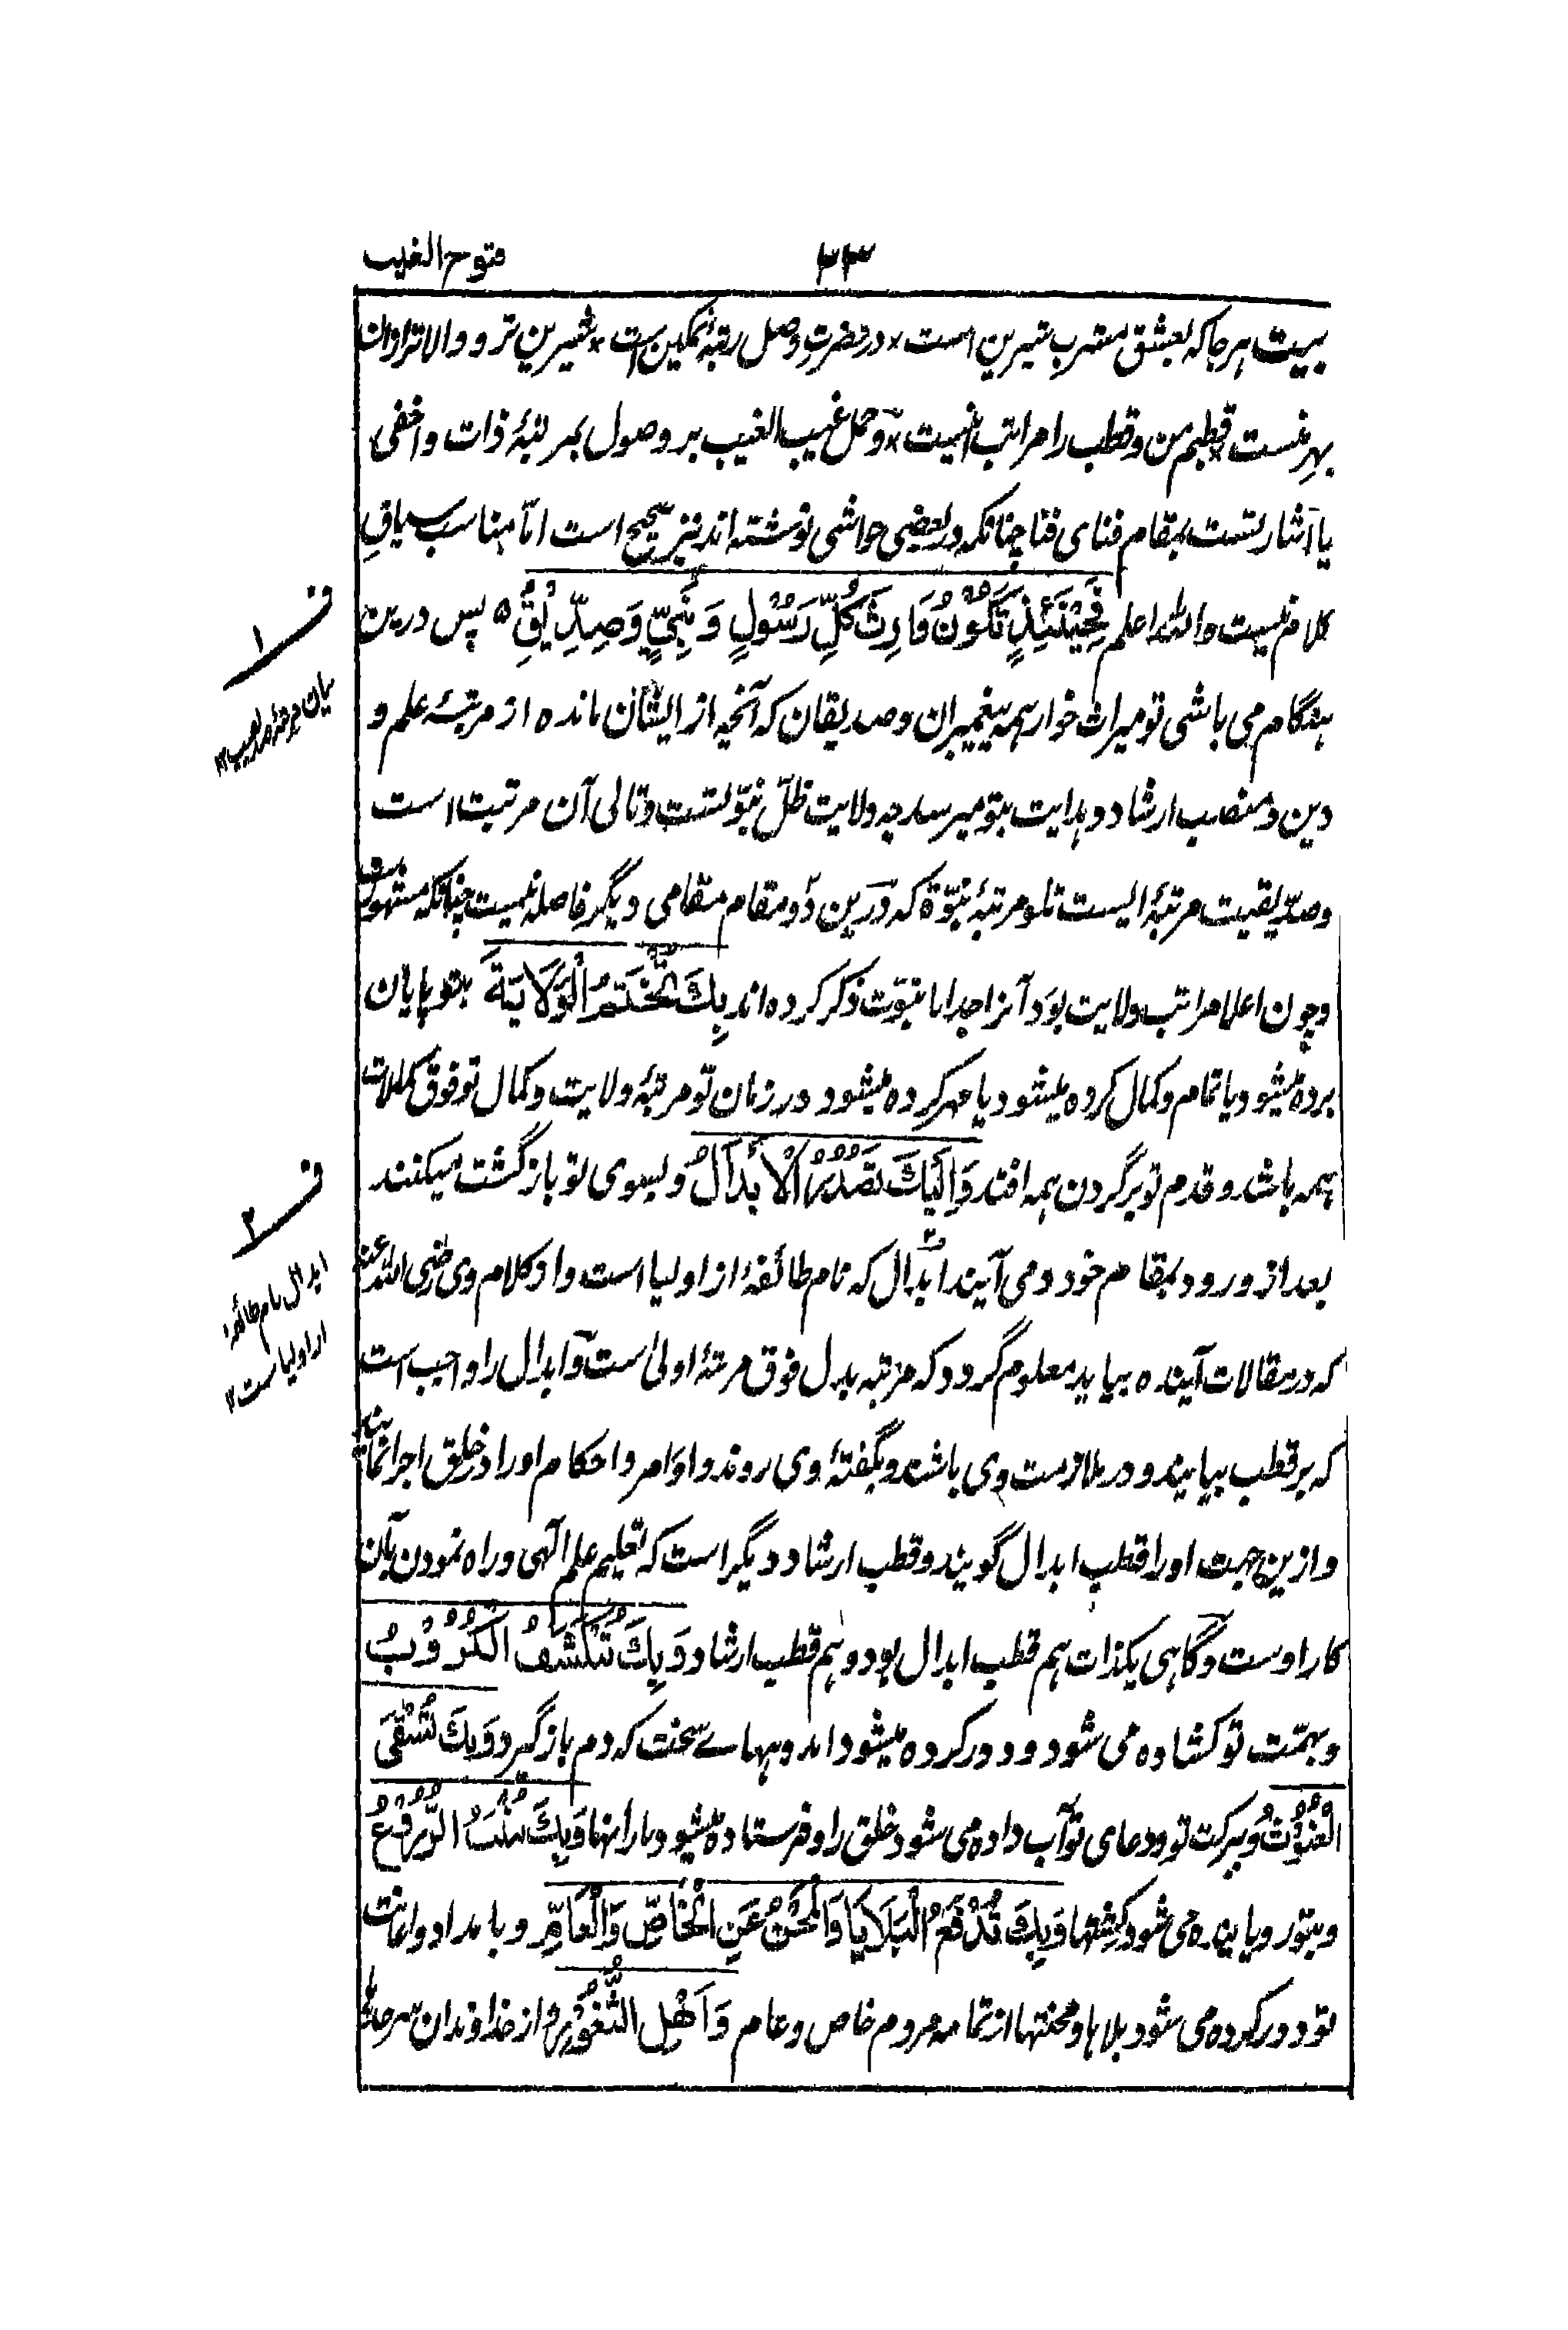 فتوح الغیب
۳۳
بیت هرجا که بعشق مشرب شیرین است × در حضرت وصل رتبهٔ تمکین است × شیرین تر و والاتر ازان
بهر منست × قطبم من و قطب را مراتب اینست × و حمل غیب الغیب بر وصول بمرتبهٔ ذات و اخفی
یا اشارتست بمقام فنای فنا چنانکه در بعضی حواشی نوشته اند نیز صحیح است اما مناسب سیاق
کلام نیست والله اعلم فَحِیْنَئِذٍ تَکُوْنُ وَارِثَ کُلِّ رَسُوْلٍ وَ نَبِیٍّ وَ صِدِّیْقٍ ٥ پس درین
هنگام می باشی تو میراث خوار همه پیغمبران و صدیقان که آنچه از ایشان مانده از مرتبهٔ علم و
دین و منصب ارشاد و هدایت بتو میرسد چه ولایت ظلّ نبوّتست و تالی آن مرتبت است
و صدّیقیت مرتبهٔ ایست تلو مرتبهٔ نبوّة که درین دو مقام مقامی دیگر فاصله نیست چنانکه مشهورست
و چون اعلا مراتب ولایت بود آنرا جدا با نبوّت ذکر کرده اند بِکَ تُخْتَمُ الْوَلَایَةُ بتو پایان
برده میشود یا تمام و کمال کرده میشود یا مهر کرده میشود در زمان تو مرتبهٔ ولایت و کمال تو فوق کمالات
همه باشد و قدم تو بر گردن همه افتد وَ اِلَیْکَ تَصْدُرُ الْاَبْدَالُ و بسوی تو بازگشت میکنند
بعد از ورود بمقام خود می آیند ابدال که نام طائفهٔ از اولیا است و از کلام وی رضی الله عنه
که در مقالات آینده بیاید معلوم گردد که مرتبه بدل فوق مرتبهٔ اولی است و ابدال را واجب است
که بر قطب بیایند و در ملازمت وی باشند و بگفتهٔ وی روند و اوامر و احکام او را در خلق اجرا نمایند
و ازین جهت او را قطب ابدال گویند و قطب ارشاد دیگر است که تعلیم علم الٰهی و راه نمودن بآن
کار اوست و گاهی یکذات هم قطب ابدال بود و هم قطب ارشاد وَ بِکَ تَنْکَشِفُ الْکُرُوْبُ
و بهمّت تو کشاده می شود و دور کرده میشود اندوهها ے سخت که دم باز گیرد وَ بِکَ تُسْقَی
الْغُیُوْثُ و ببرکت تو و دعای تو آب داده می شود خلق را و فرستاده میشود بارانها وَ بِکَ تُنْبَتُ الزُّرُوْعُ
و بتو رویانیده می شود کشتها وَ بِکَ تُدْفَعُ الْبَلَایَا وَ الْمِحَنُ عَنِ الْخَاصِّ وَ الْعَامِّ و بامداد و اعانت
تو دور کرده می شود بلاها و محنتها از تمامه مردم خاص و عام وَ اَهْلِ الثُّغُوْرِ و از خداوندان سرحد
فـ ۱
بیان
فـ ۲
ابدال نام طائفهٔ
از اولیاست ۱۲